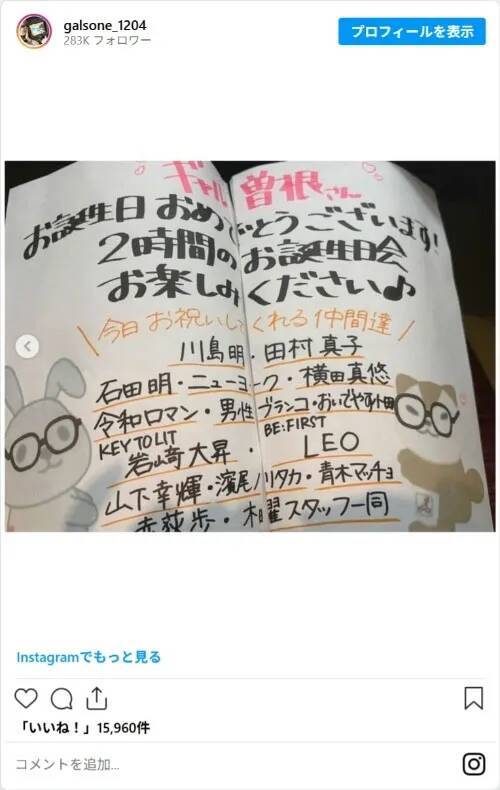 galsone_1204
283K フォロワー
プロフィールを表示
ギャル曽根さん
お誕生日おめでとうございます!
2時間のお誕生日会
お楽しみください♪
\今日お祝いしてくれる仲間達/
川島明・田村真子
石田明・ニューヨーク・横田真悠
令和ロマン・男性ブランコ・おいでやす小田
KEY TO LIT 岩﨑大昇・BE:FIRST LEO
山下幸輝・濱尾ノリタカ・青木マッチョ
赤荻歩・木曜スタッフ一同
Instagramでもっと見る
「いいね!」15,960件
コメントを追加...